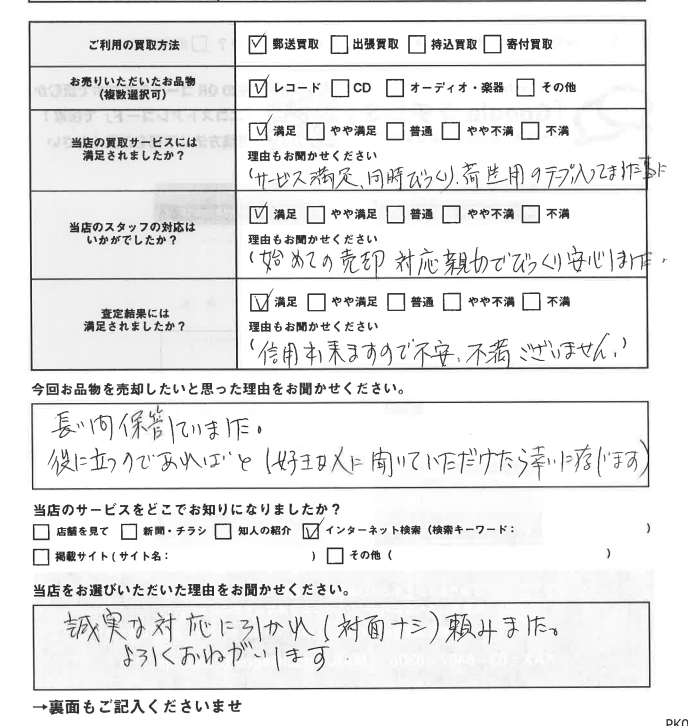 ご利用の買取方法
☑ 郵送買取 □ 出張買取 □ 持込買取 □ 寄付買取
お売りいただいたお品物
(複数選択可)
☑ レコード □ CD □ オーディオ・楽器 □ その他
当店の買取サービスには
満足されましたか?
☑ 満足 □ やや満足 □ 普通 □ やや不満 □ 不満
理由もお聞かせください
(サービス満足、同時びっくり、荷造用のテープ入ってました事に
当店のスタッフの対応は
いかがでしたか?
☑ 満足 □ やや満足 □ 普通 □ やや不満 □ 不満
理由もお聞かせください
(始めての売却 対応親切でびっくり安心しました。
査定結果には
満足されましたか?
☑ 満足 □ やや満足 □ 普通 □ やや不満 □ 不満
理由もお聞かせください
(信用出来ますので不安、不満ございません。)
今回お品物を売却したいと思った理由をお聞かせください。
長い間保管していました。
役に立つのであればと(好きな人に聞いていただけたら幸いに存じます)
当店のサービスをどこでお知りになりましたか?
□ 店舗を見て □ 新聞・チラシ □ 知人の紹介 ☑ インターネット検索(検索キーワード: )
□ 掲載サイト(サイト名: ) □ その他( )
当店をお選びいただいた理由をお聞かせください。
誠実な対応に引かれ(対面ナシ)頼みました。
よろしくおねがいします
→裏面もご記入くださいませ
PK0